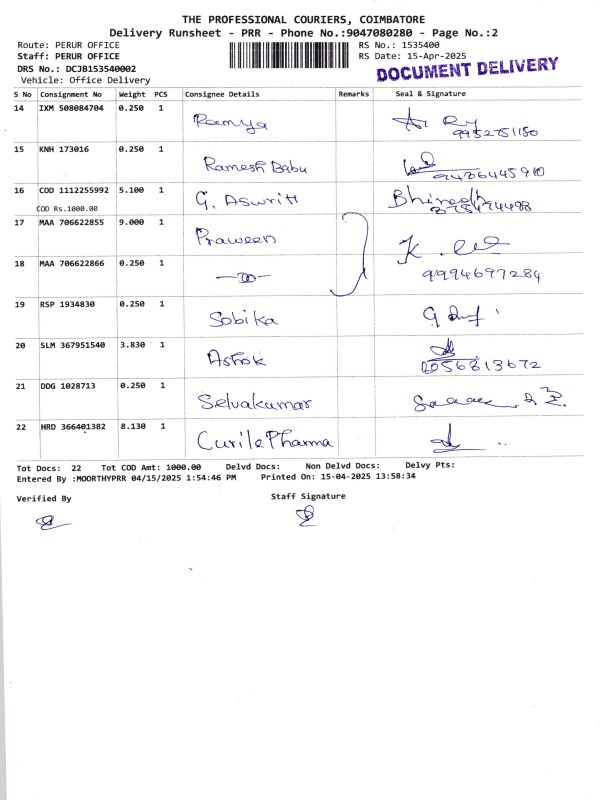 THE PROFESSIONAL COURIERS, COIMBATORE
Delivery Runsheet - PRR - Phone No.:9047080280 - Page No.:2
Route: PERUR OFFICE
RS No.: 1535400
Staff: PERUR OFFICE
RS Date: 15-Apr-2025
DRS No.: DCJB153540002
DOCUMENT DELIVERY
Vehicle: Office Delivery
S No Consignment No Weight PCS Consignee Details Remarks Seal & Signature
14 IXM 508084704 0.250 1 Ramya
9952751180
15 KNH 173016 0.250 1 Ramesh Babu
9486445910
16 COD 1112255992 5.100 1 G. Aswritt
COD Rs.1000.00
17 MAA 706622855 9.000 1 Praween
18 MAA 706622866 0.250 1 —do—
9994697284
19 RSP 1934830 0.250 1 Sobika
20 SLM 367951540 3.830 1 Ashok
21 DDG 1028713 0.250 1 Selvakumar
22 HRD 366401382 8.130 1 Curile Pharma
Tot Docs: 22 Tot COD Amt: 1000.00 Delvd Docs: Non Delvd Docs: Delvy Pts:
Entered By :MOORTHYPRR 04/15/2025 1:54:46 PM Printed On: 15-04-2025 13:58:34
Verified By
Staff Signature